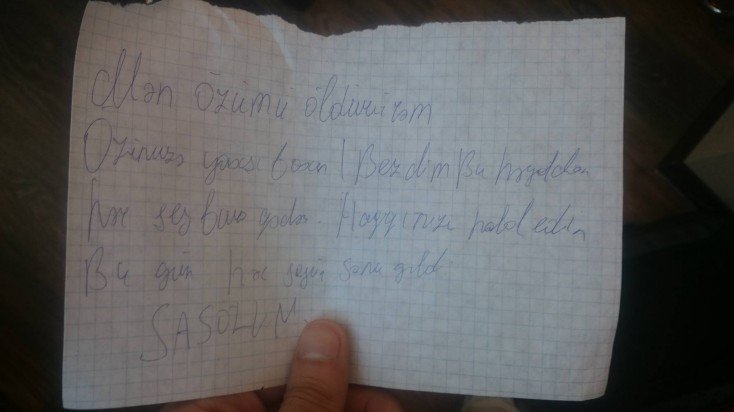 Mən özümü öldürürəm
Özünüzə yaxşı baxın! Bezdim Bu həyatdan
hər şey bura qədər. Haqqınızı halal edin
Bu gün hər şeyin sonu gəldi
SAĞOLUN